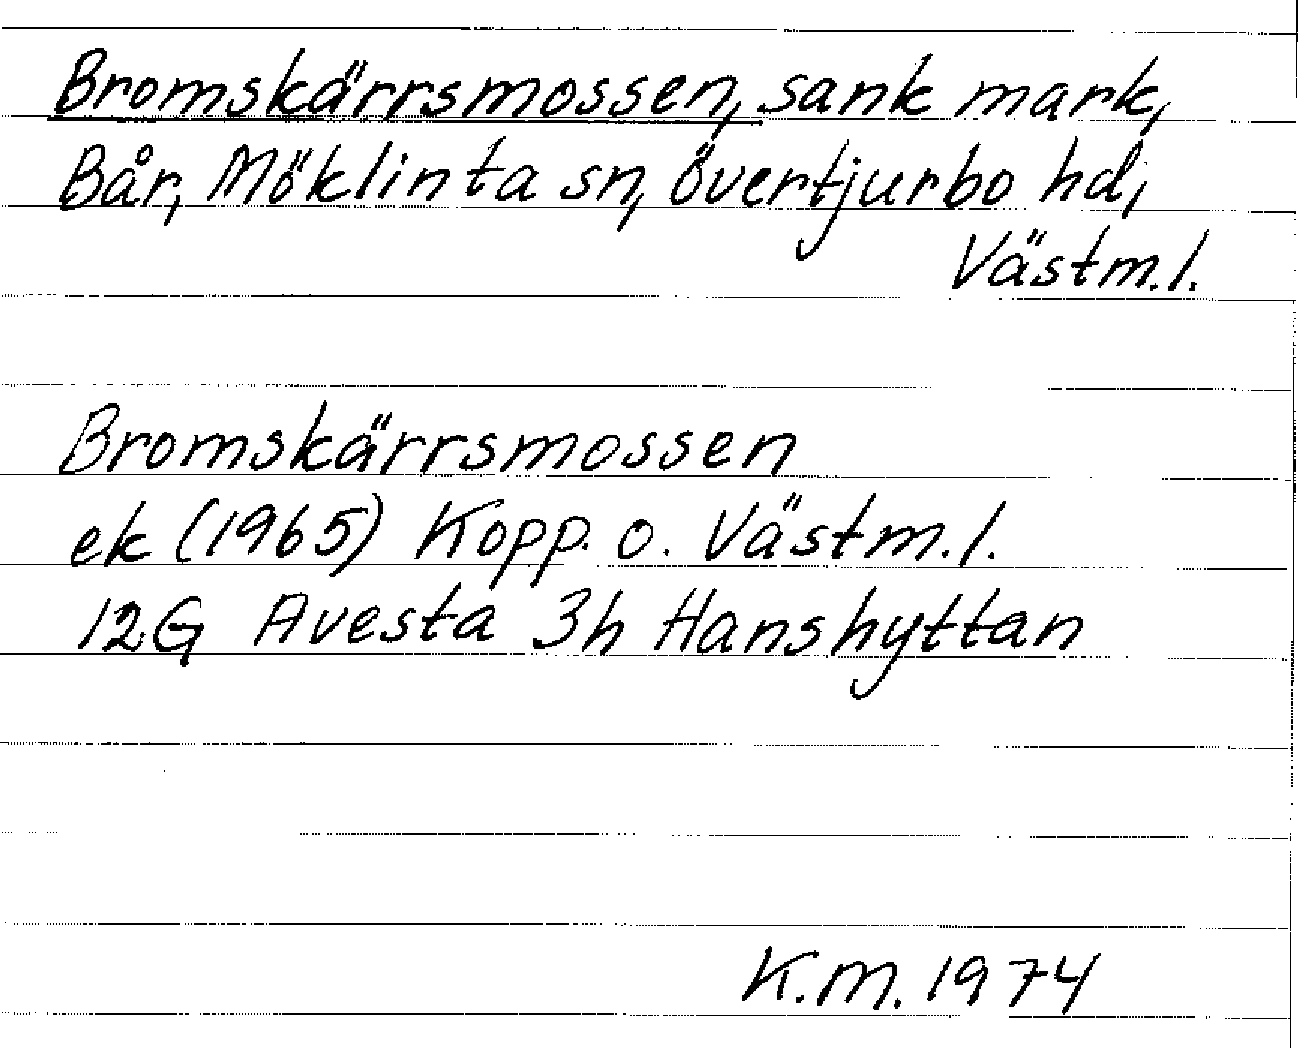 Bromskärrsmossen, sank mark,
Bår, Möklinta sn, Övertjurbo hd,
Västm.l.
Bromskärrsmossen
ek (1965) Kopp. o. Västm.l.
12G Avesta 3h Hanshyttan
K.M. 1974